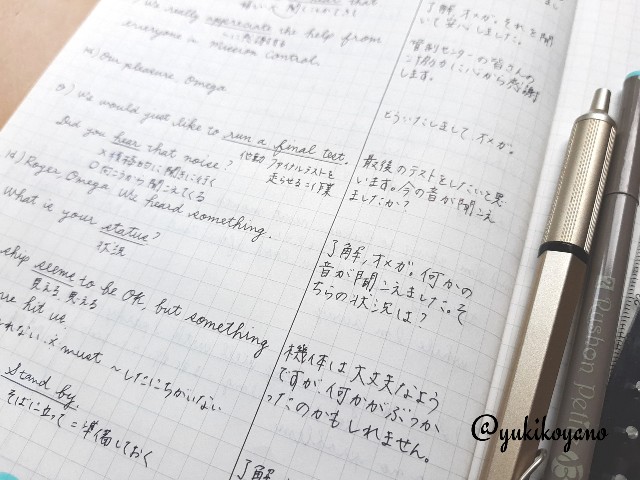 We really appreciate the help from
心から感謝する
everyone in Mission Control.
m) Our pleasure, Omega
o) We would just like to run a final test.
他動 ファイナルテストを
走らせる=作業
Did you hear that noise?
×積極的に聞きに行く
○向こうから聞こえてくる
m) Roger, Omega. We heard something.
What is your status?
状況
ship seems to be OK, but something
見える, 思える
hit us.
れない. × must ~したにちがいない
Stand by.
そばに立って = 準備しておく
了解、オメガ。それを聞
いて安心しました。
管制センターの皆さんの
ご協力に心から感謝
します。
どういたしまして、オメガ。
最後のテストをしたいと思
います。今の音が聞こえ
ましたか?
了解、オメガ。何かの
音が聞こえました。そ
ちらの状況は?
機体は大丈夫なよう
ですが、何かがぶつか
ったのかもしれません。
了解、
@yukikoyano